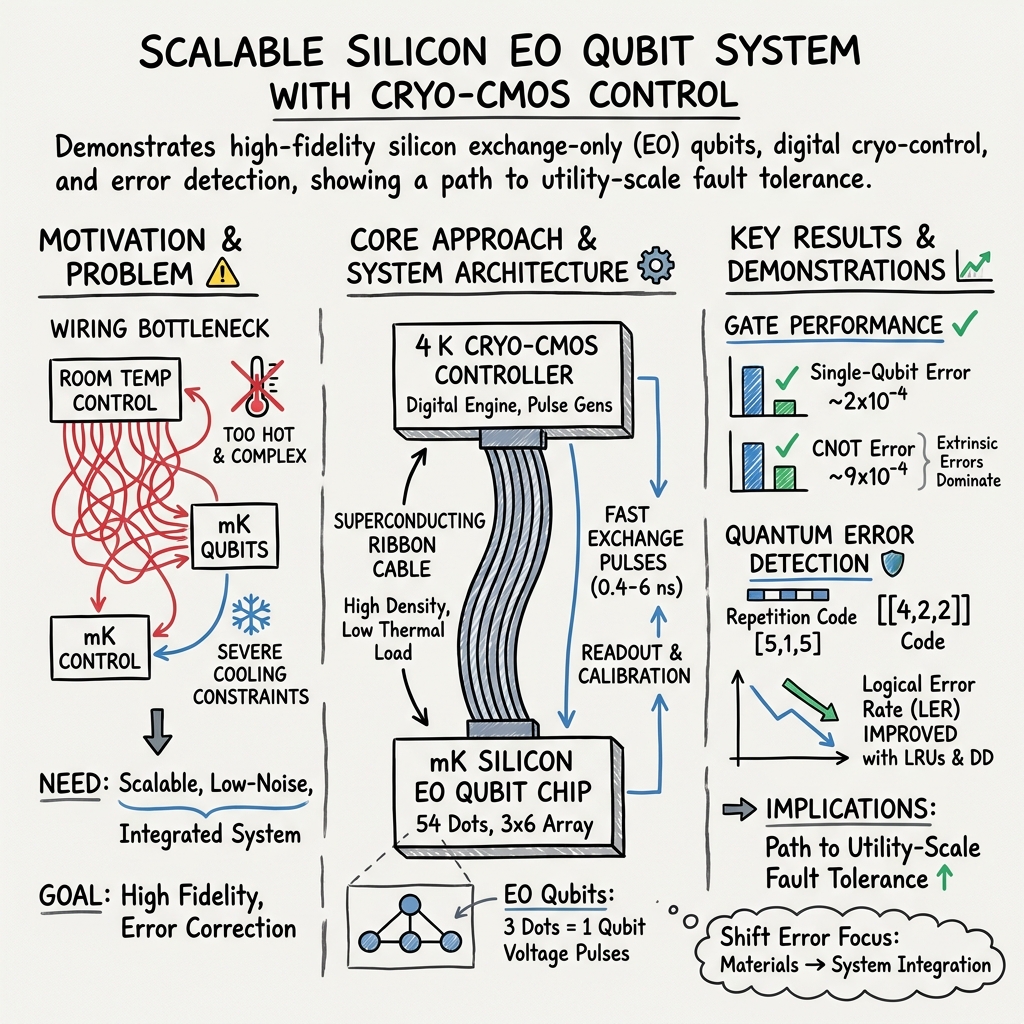 SCALABLE SILICON EO QUBIT SYSTEM
WITH CRYO-CMOS CONTROL
Demonstrates high-fidelity silicon exchange-only (EO) qubits, digital cryo-control,
and error detection, showing a path to utility-scale fault tolerance.
MOTIVATION &
PROBLEM
WIRING BOTTLENECK
ROOM TEMP
CONTROL
TOO HOT
& COMPLEX
mK
QUBITS
mK
CONTROL
SEVERE
COOLING
CONSTRAINTS
NEED: Scalable, Low-Noise,
Integrated System
GOAL: High Fidelity,
Error Correction
CORE APPROACH &
SYSTEM ARCHITECTURE
4 K CRYO-CMOS
CONTROLLER
Digital Engine, Pulse Gens
SUPERCONDUCTING
RIBBON
CABLE
High Density,
Low Thermal
Load
FAST
EXCHANGE
PULSES
(0.4-6 ns)
READOUT &
CALIBRATION
mK SILICON
EO QUBIT CHIP
54 Dots, 3x6 Array
EO Qubits:
3 Dots = 1 Qubit
Voltage Pulses
KEY RESULTS &
DEMONSTRATIONS
GATE PERFORMANCE
Single-Qubit Error
~2x10⁻⁴
CNOT Error
~9x10⁻⁴
Extrinsic
Errors
Dominate
QUANTUM ERROR
DETECTION
Repetition Code
[5,1,5]
[[4,2,2]]
Code
Logical Error
Rate (LER)
IMPROVED
with LRUs & DD
IMPLICATIONS:
Path to Utility-Scale
Fault Tolerance ↑
Shift Error Focus:
Materials → System Integration